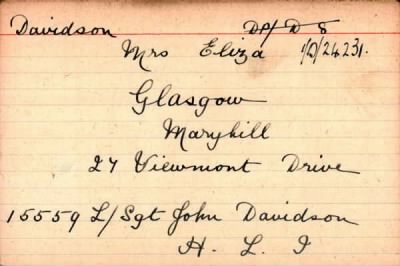 Davidson DP/D 8
Mrs Eliza 1/D/24231.
Glasgow
Maryhill
27 Viewmont Drive
15559 L/Sgt John Davidson
H. L. I